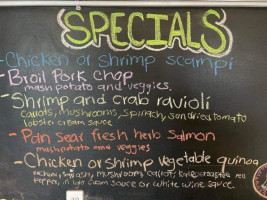 SPECIALS
- Chicken or shrimp scampi
- Broil Pork Chop
mash potato and veggies.
- Shrimp and crab ravioli
carrots, mushrooms, spinach, sundried tomato
lobster cream sauce
- Pan Sear fresh herb Salmon
mash potato and veggies
- Chicken or shrimp vegetable quinoa
spinach, mushrooms, carrots, red
pepper, in cream sauce or white wine sauce.